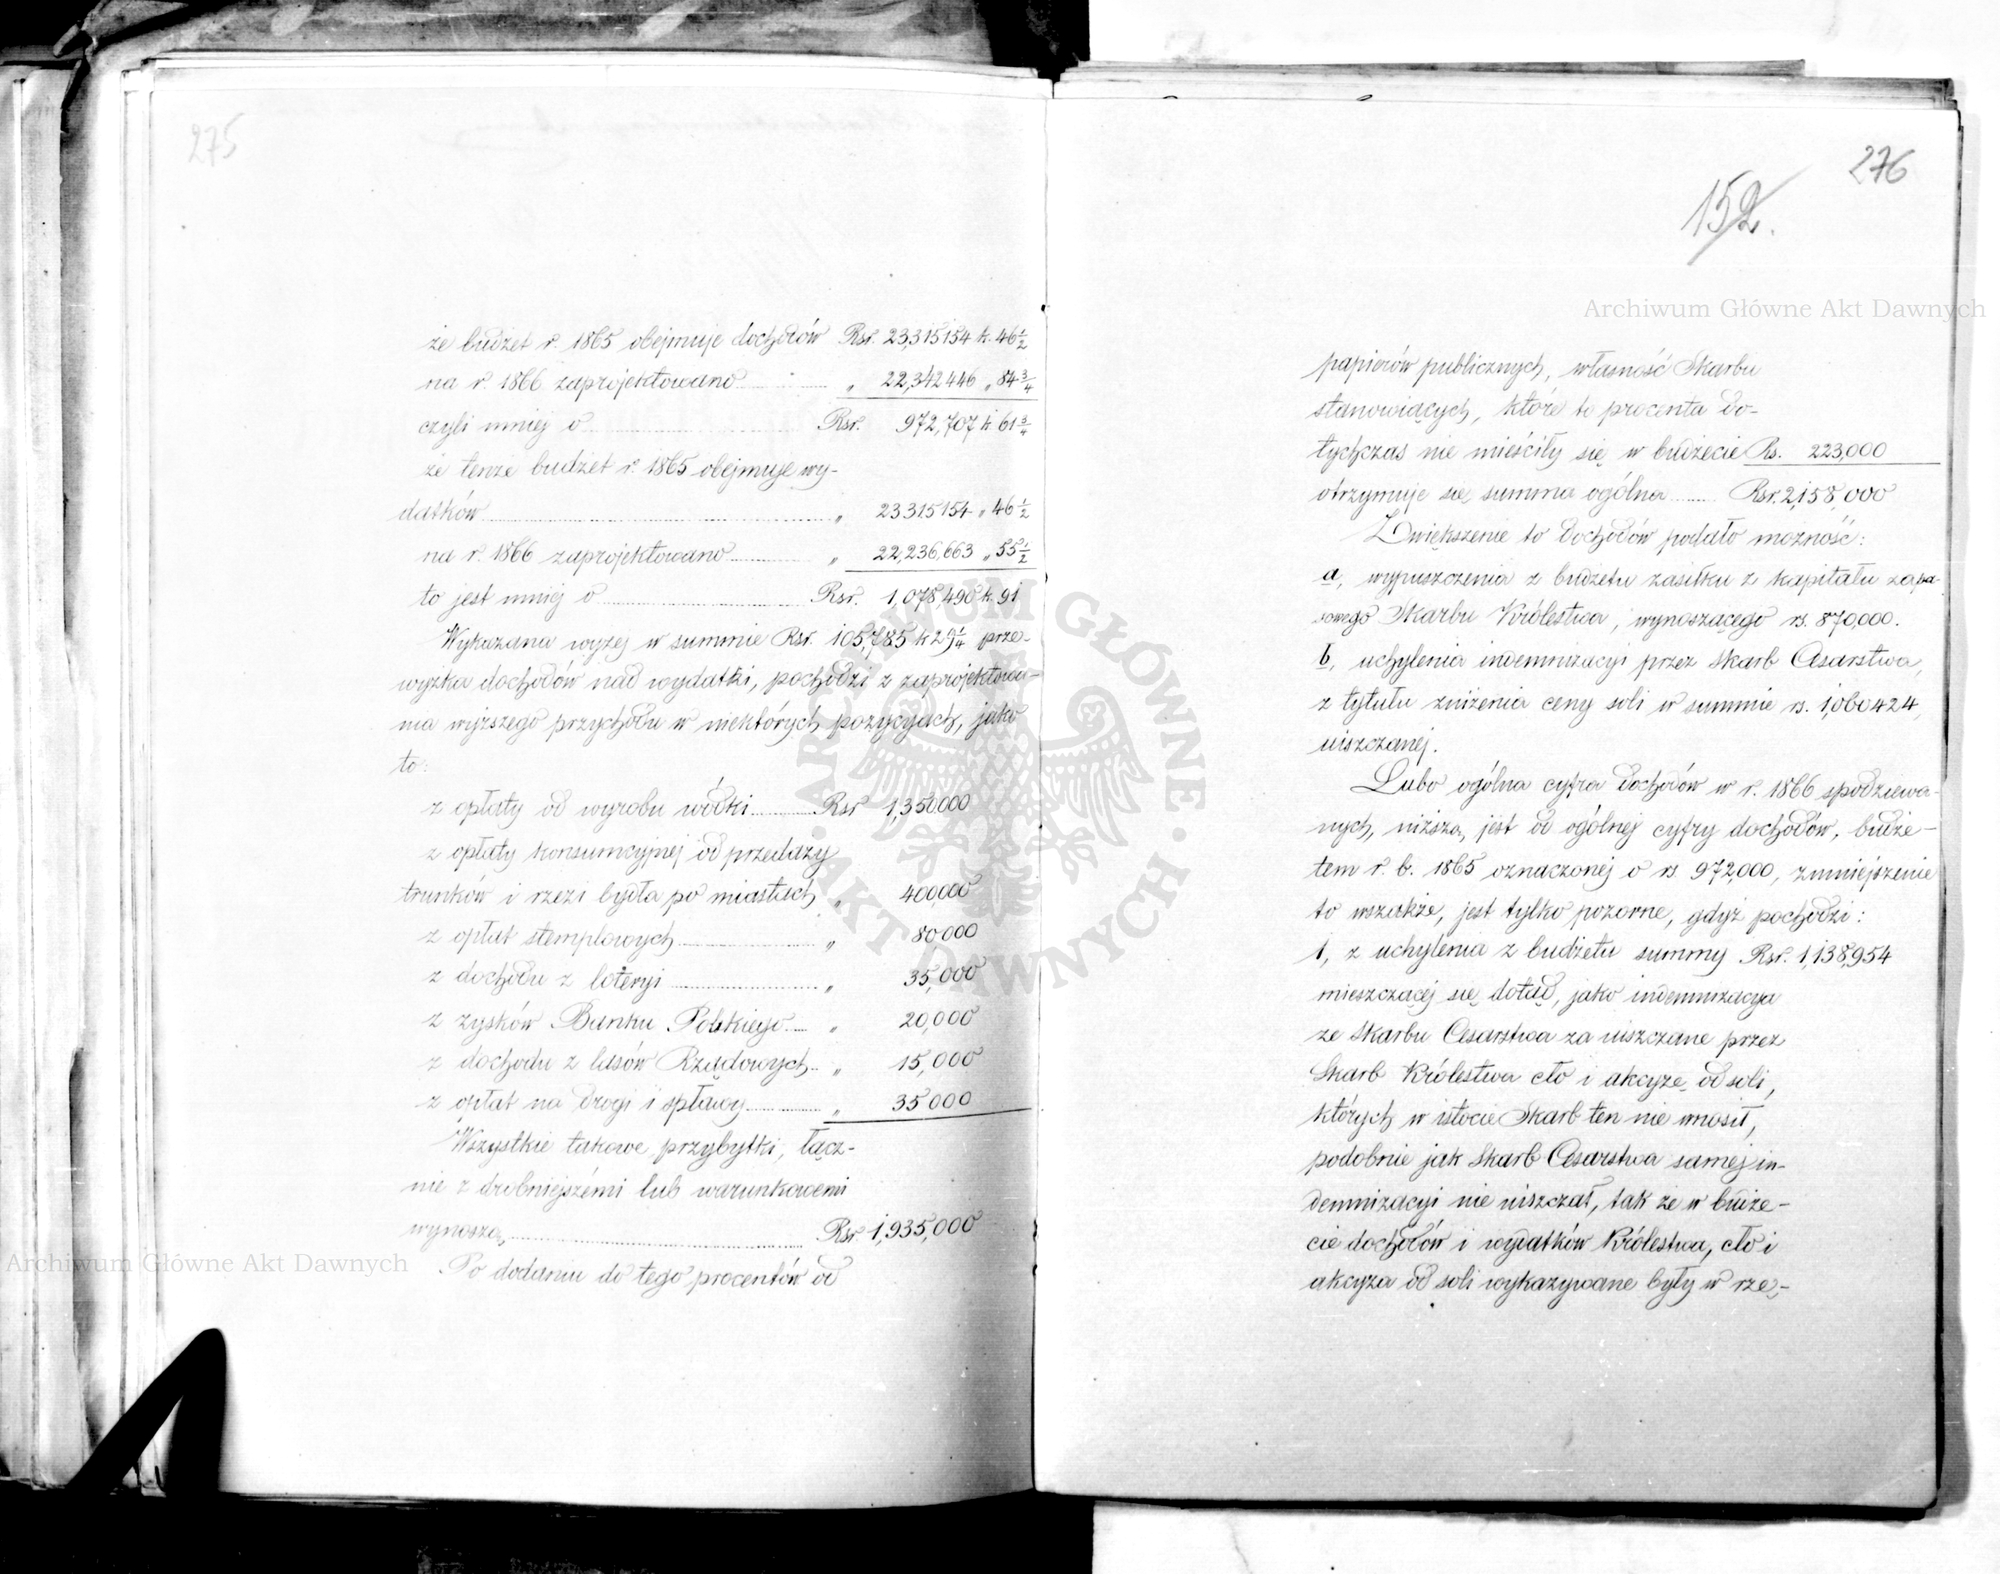 275
że budżet r. 1865 obejmuje dochodów Rsr. 23,315154 k. 46 1/2
na r. 1866 zaprojektowano „ 22,342446 „ 84 3/4
czyli mniej o Rsr. 972,707 k 61 3/4
że tenże budżet r. 1865 obejmuje wy-
datków „ 23315154 „ 46 1/2
na r. 1866 zaprojektowano „ 22,236,663 „ 55 1/2
to jest mniej o Rsr. 1,078,490 k. 91
Wykazana wyżej w summie Rsr. 105,785 k 29 1/4 prze-
wyżka dochodów nad wydatki, pochodzi z zaprojektowa-
nia wyższego przychodu w niektórych pozycyach, jako
to:
z opłaty od wyrobu wódki Rsr 1,350000
z opłaty konsumcyjnej od przedaży
trunków i rzezi bydła po miastach „ 400,000
z opłat stemplowych „ 80000
z dochodu z loteryi „ 35,000
z zysków Banku Polskiego „ 20,000
z dochodu z lasów Rządowych „ 15,000
z opłat na drogi i spławy „ 35000
Wszystkie takowe przybytki, łącz-
nie z drobniejszémi lub warunkowemi
wynoszą, Rsr 1,935,000
Po dodaniu do tego procentów od
276
152.
papierów publicznych, własność Skarbu
stanowiących, które to procenta do-
tychczas nie mieściły się w budżecie Rs. 223,000
otrzymuje się summa ogólna Rsr. 2,158,000
Zwiększenie to dochodów podało możność:
a, wypuszczenia z budżetu zasiłku z kapitału zapa-
sowego Skarbu Królestwa, wynoszącego rs. 870,000.
b, uchylenia indemnizacyi przez Skarb Cesarstwa,
z tytułu zniżenia ceny soli w summie rs. 1,060424,
uiszczanej.
Lubo ogólna cyfra dochodów w r. 1866 spodziewa-
nych, niższą jest od ogólnej cyfry dochodów, budże-
tem r. b. 1865 oznaczonej o rs 972,000, zmniejszenie
to wszakże, jest tylko pozorne, gdyż pochodzi:
1, z uchylenia z budżetu summy Rsr. 1,138,954
mieszczącéj się dotąd, jako indemnizacya
ze Skarbu Cesarstwa za uiszczane przez
Skarb Królestwa cło i akcyzę od soli,
których w istocie Skarb ten nie wnosił,
podobnie jak Skarb Cesarstwa samej in-
demnizacyi nie uiszczał, tak że w budże-
cie dochodów i wydatków Królestwa, cło i
akcyza od soli wykazywane były w rze-
Archiwum Główne Akt Dawnych
Archiwum Główne Akt Dawnych
ARCHIWUM GŁÓWNE · AKT DAWNYCH ·